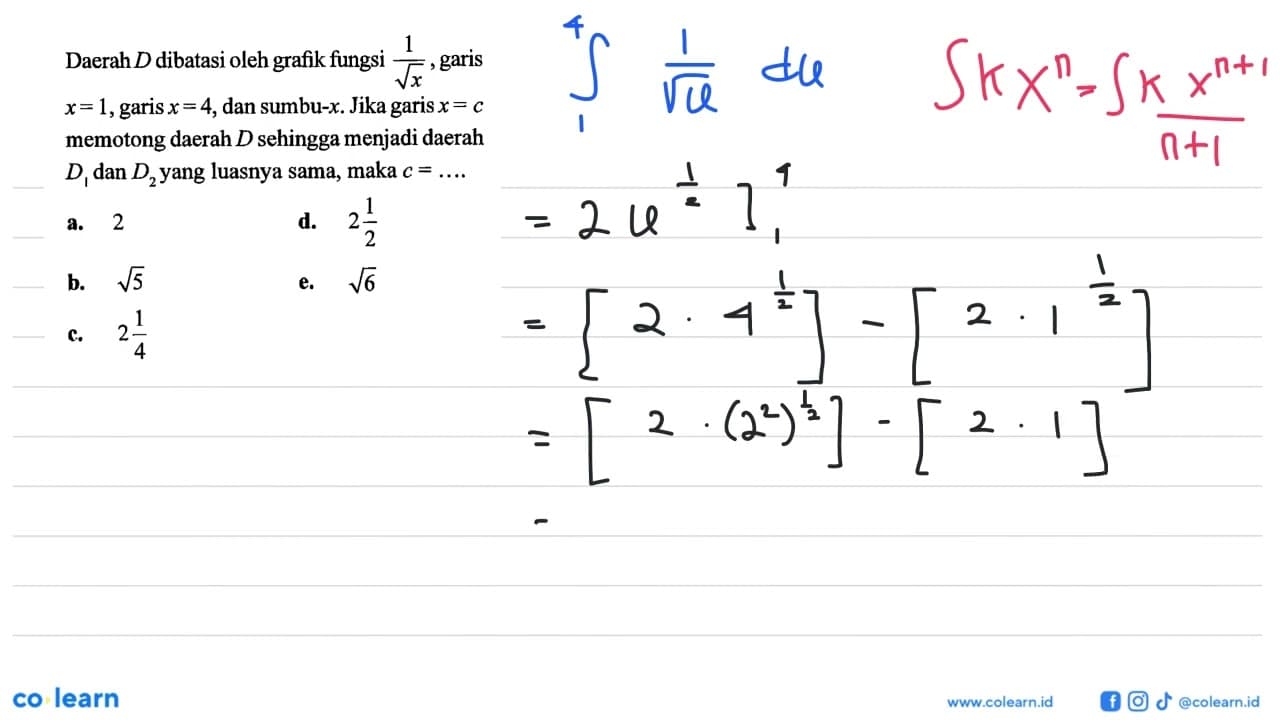 Daerah D dibatasi oleh grafik fungsi 1/√x, garis
x = 1, garis x = 4, dan sumbu-x. Jika garis x = c
memotong daerah D sehingga menjadi daerah
D₁ dan D₂ yang luasnya sama, maka c = ....
a. 2
d. 2 1/2
b. √5
e. √6
c. 2 1/4
∫₁⁴ 1/√x dx
∫ k xⁿ = ∫ k xⁿ⁺¹/n+1
= 2 x^(1/2) ]₁⁴
= [ 2 · 4^(1/2) ] - [ 2 · 1^(1/2) ]
= [ 2 · (2²)^(1/2) ] - [ 2 · 1 ]
-
co learn
www.colearn.id
@colearn.id